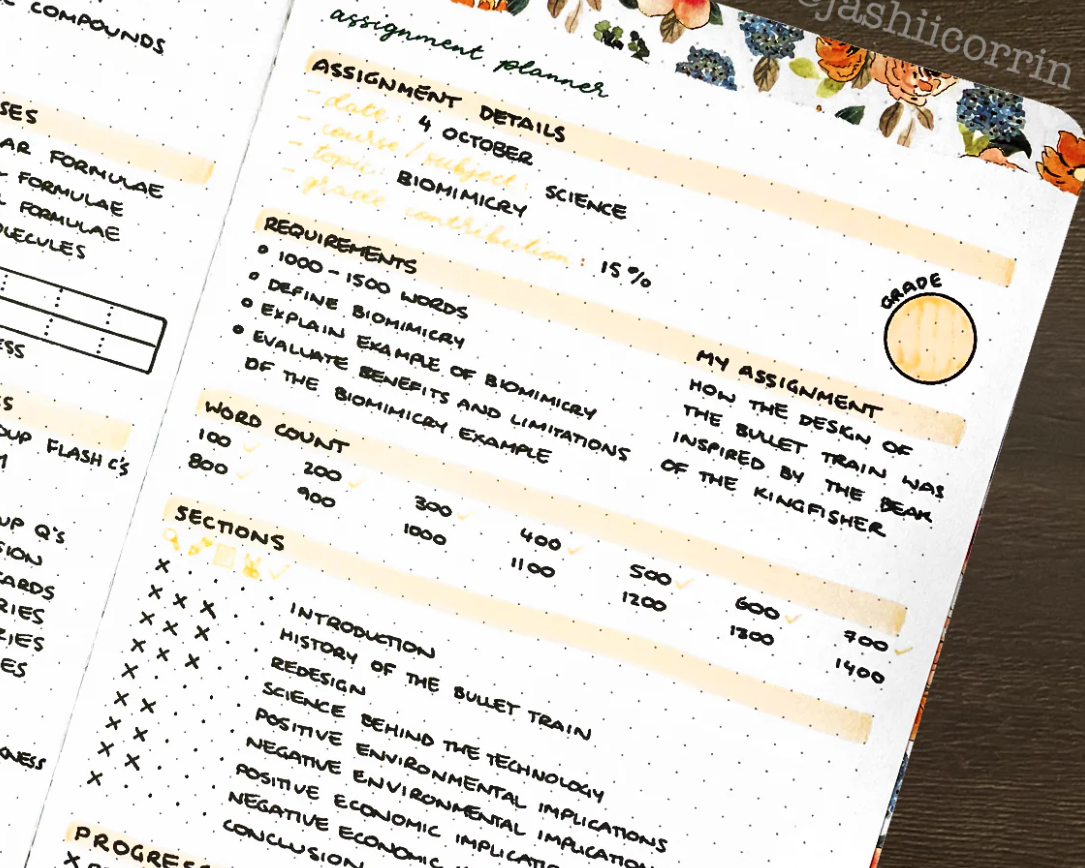 COMPOUNDS
AR FORMULAE
FORMULAE
FORMULAE
FLASH C's
UP Q's
assignment planner
ejashiicorrin
ASSIGNMENT DETAILS
- date: 4 OCTOBER
- course / subject: SCIENCE
- topic: BIOMIMICRY
- grade contribution: 15%
GRADE
REQUIREMENTS
• 1000 - 1500 WORDS
• DEFINE BIOMIMICRY
• EXPLAIN EXAMPLE OF BIOMIMICRY
• EVALUATE BENEFITS AND LIMITATIONS
OF THE BIOMIMICRY EXAMPLE
MY ASSIGNMENT
HOW THE DESIGN OF
THE BULLET TRAIN WAS
INSPIRED BY THE BEAK
OF THE KINGFISHER
WORD COUNT
100 ✓ 200 ✓ 300 ✓ 400 ✓ 500 ✓ 600 ✓ 700 ✓
800 ✓ 900 1000 1100 1200 1300 1400
SECTIONS
X INTRODUCTION
X X X HISTORY OF THE BULLET TRAIN
X X X REDESIGN
X X X SCIENCE BEHIND THE TECHNOLOGY
X POSITIVE ENVIRONMENTAL IMPLICATIONS
X X NEGATIVE ENVIRONMENTAL IMPLICATIONS
X X POSITIVE ECONOMIC IMPLICATIO
X X NEGATIVE ECONOMIC
X CONCLUSION
PROGRESS